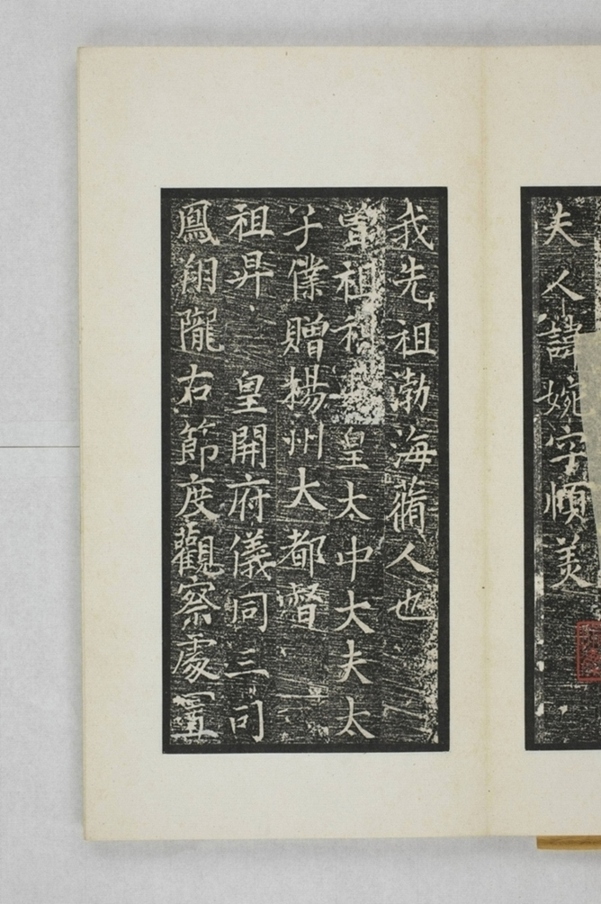 夫人諱婉字順美
我先祖渤海蓨人也
曾祖祐皇大中大夫太
子僕贈楊州大都督
祖昇皇開府儀同三司
鳳翔隴右節度觀察處置